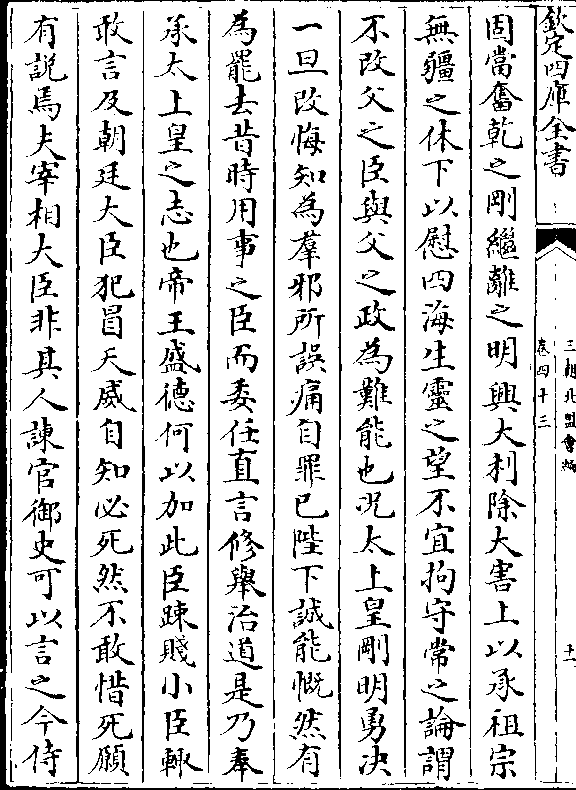 欽定四庫全書
三朝北盟會編
卷四十三
十一
固當奮乾之剛繼離之明興大利除大害上以承祖宗
無疆之休下以慰四海生靈之望不宜拘守常之論謂
不改父之臣與父之政為難能也况太上皇剛明勇决
一旦改悔知為羣邪所誤痛自罪已陛下誠能慨然有
為罷去昔時用事之臣而委任直言修舉治道是乃奉
承太上皇之志也帝王盛德何以加此臣踈賤小臣輙
敢言及朝廷大臣犯冒天威自知必死然不敢惜死願
有說焉夫宰相大臣非其人諫官御史可以言之今侍